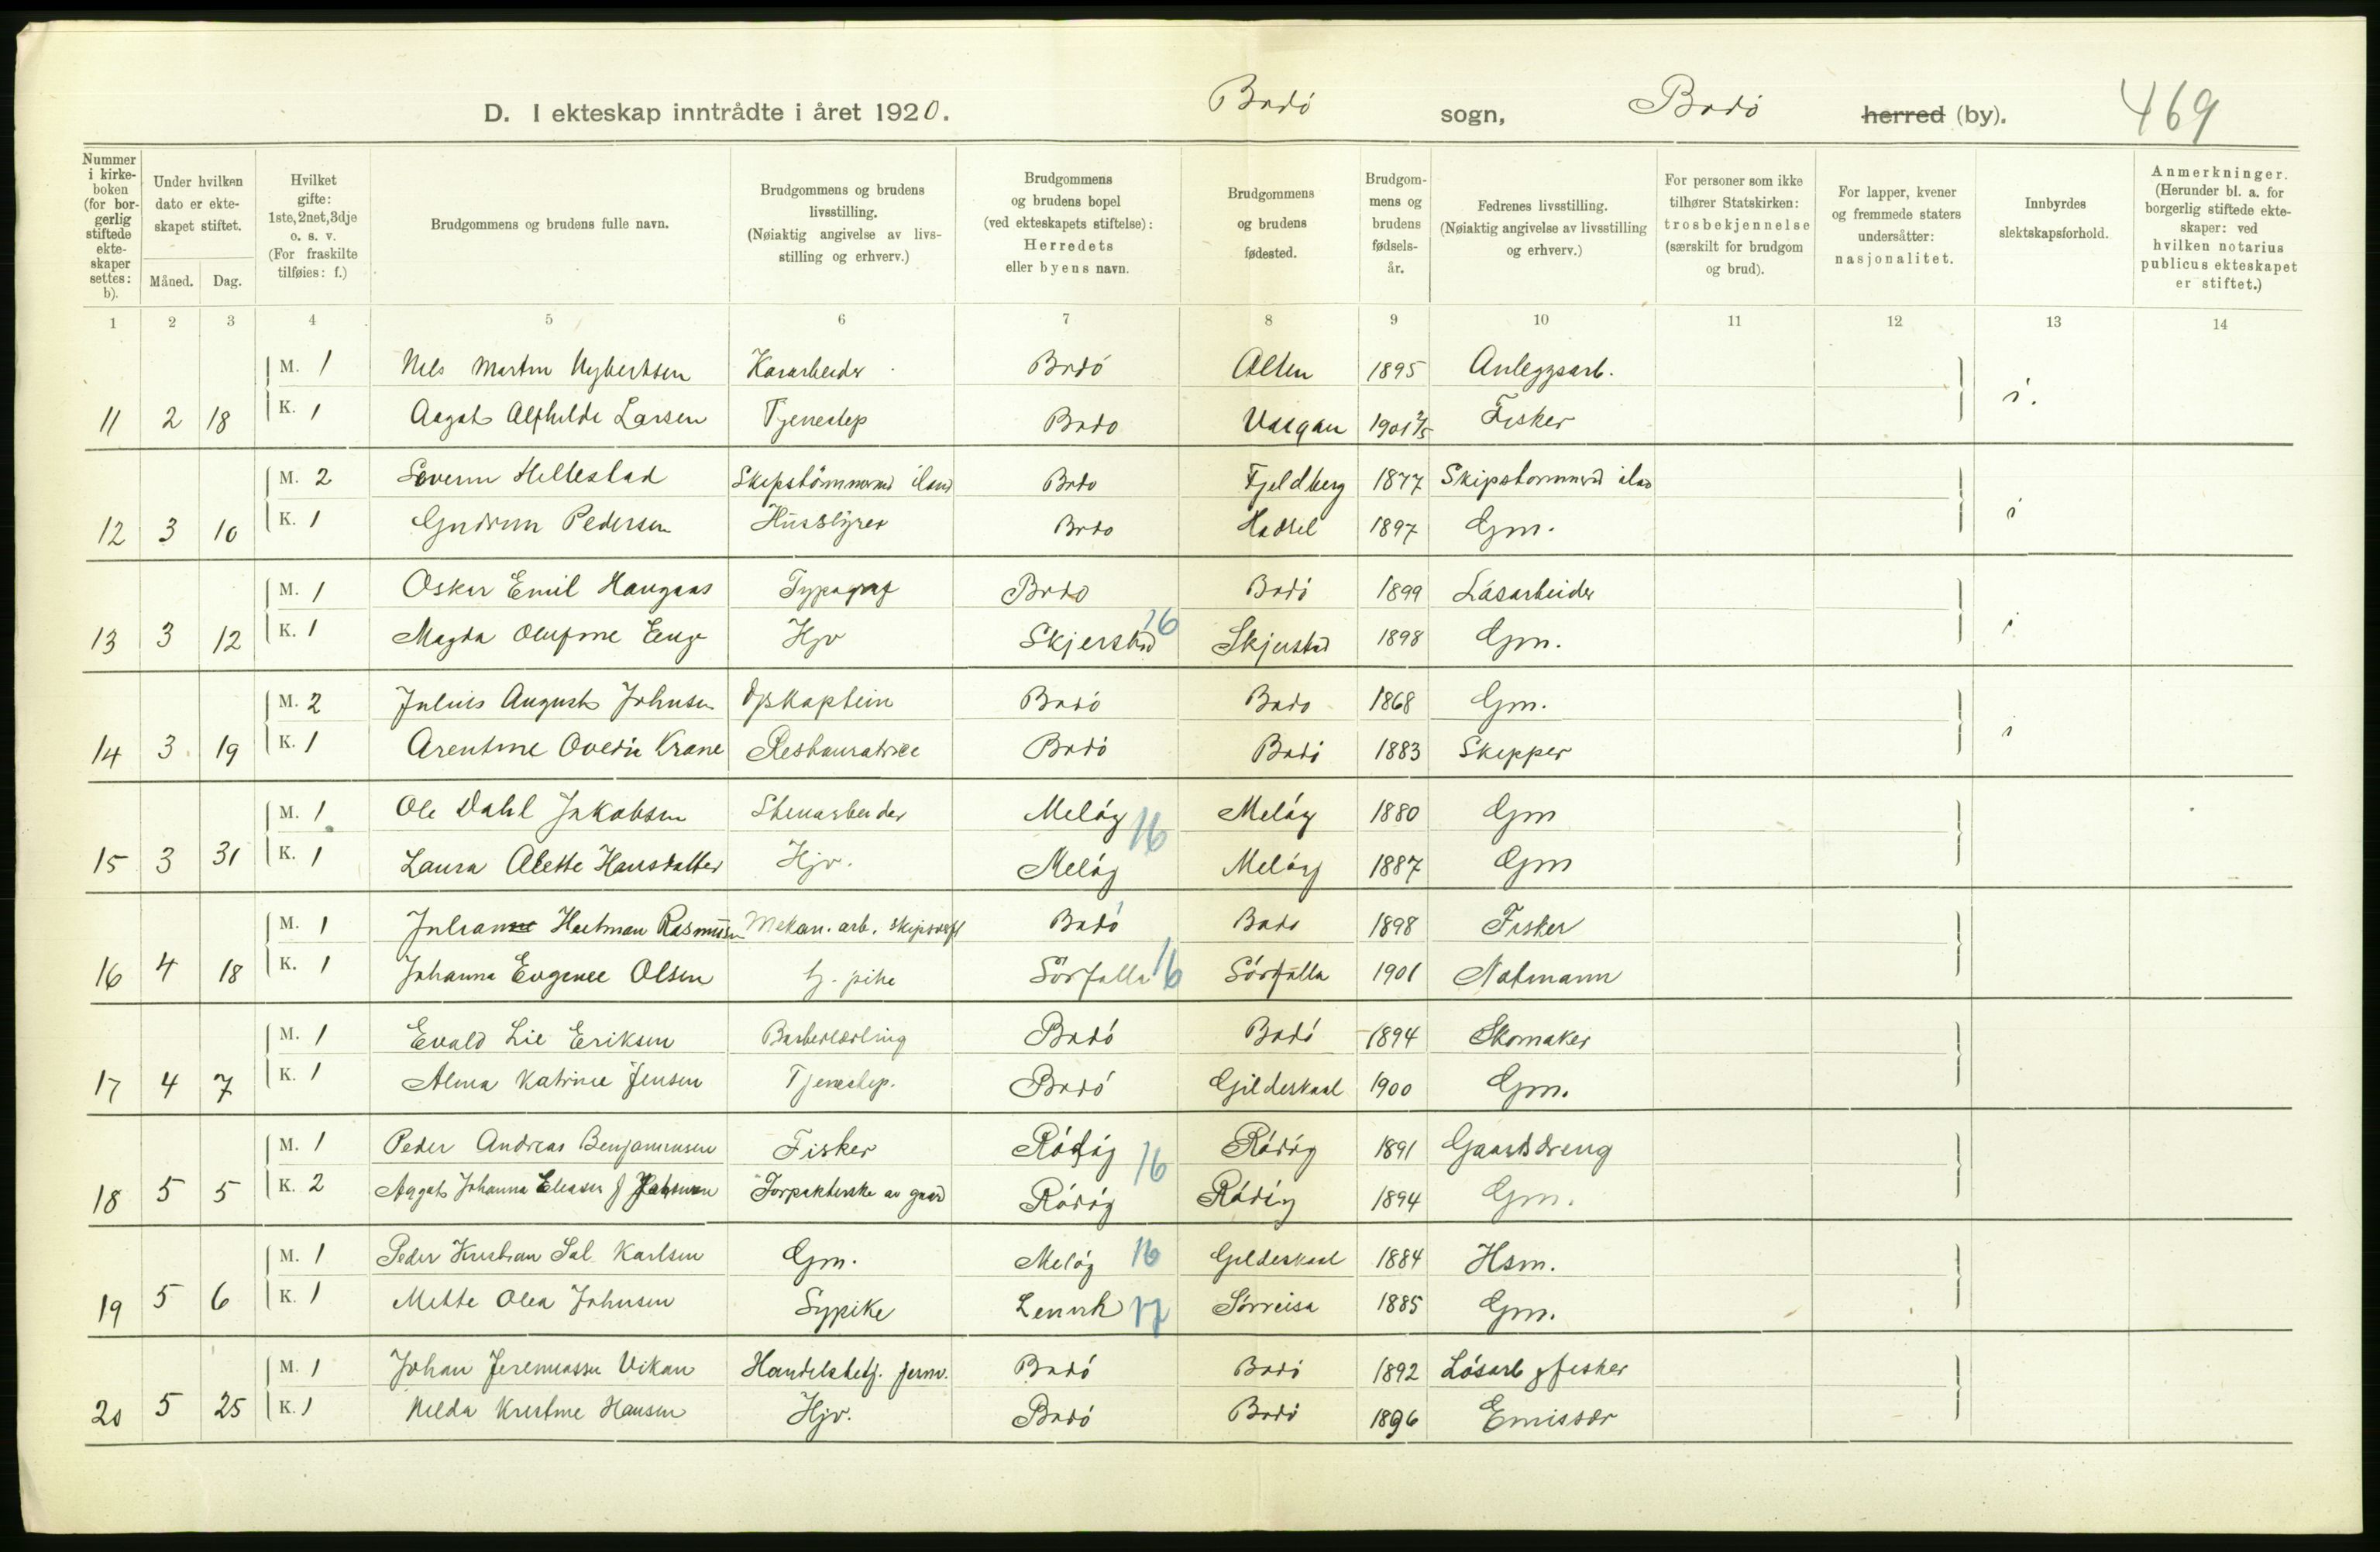 D. I ekteskap inntrådte i året 1920. Bodö sogn, Bodö herred (by). 469
Nummer i kirkeboken (for borgerlig stiftede ekteskaper settes: b).
Under hvilken dato er ekteskapet stiftet.
Måned. Dag.
Hvilket gifte: 1ste, 2net, 3dje o. s. v. (For fraskilte tilføies: f.)
Brudgommens og brudens fulle navn.
Brudgommens og brudens livsstilling. (Nøiaktig angivelse av livsstilling og erhverv.)
Brudgommens og brudens bopel (ved ekteskapets stiftelse): Herredets eller byens navn.
Brudgommens og brudens fødested.
Brudgommens og brudens fødselsår.
Fedrenes livsstilling. (Nøiaktig angivelse av livsstilling og erhverv.)
For personer som ikke tilhører Statskirken: trosbekjennelse (særskilt for brudgom og brud).
For lapper, kvener og fremmede staters undersåtter: nasjonalitet.
Innbyrdes slektskapsforhold.
Anmerkninger. (Herunder bl. a. for borgerlig stiftede ekteskaper: ved hvilken notarius publicus ekteskapet er stiftet.)
1 2 3 4 5 6 7 8 9 10 11 12 13 14
M. 1 Nels Martin Nybertsen Kaiarbeider Bodö Alten 1895 Anleggsarb.
11 2 18 K. 1 Aagot Alfhilde Larsen Tjenestep Bodo Vaagan 1901 Fisker i.
M. 2 Severin Hellestad Skipstömmermd iland Bodo Fjeldberg 1877 Skipstommermd
12 3 10 K. 1 Gudrun Pedersen Husstyrer Bodo Hadsel 1897 Gm. i
M. 1 Oskar Emil Haugaas Typograf Bodo Bodö 1899 Lösarbeider
13 3 12 K. 1 Magda Olufine Hjv Skjerstad 16 Skjerstad 1898 Gm. i
M. 2 Julius August Johnsen Dpskaptein Bodö Bodo 1868 Gm.
14 3 19 K. 1 Arentine Ovedie Krane Restauratrice Bodö Bodö 1883 Skipper i
M. 1 Ole Dahl Jakobsen Stenarbeider Melöy 16 Melöy 1880 Gm
15 3 31 K. 1 Laura Alette Hansdatter Hjv. Melöy Melöy 1887 Gm
M. 1 Julian Hartman Rasmussen Mekan. arb. Bodö Bodo 1898 Fisker
16 4 18 K. 1 Johanna Eugenie Olsen tj. pike Sörfolla 16 Sörfolla 1901 Notmann
M. 1 Evald Lie Eriksen Barberlærling Bodö Bodö 1894 Skomaker
17 4 7 K. 1 Alma Katrine Jensen Tjenestep. Bodö Gildeskaal 1900 Gm.
M. 1 Peder Andreas Benjaminsen Fisker Rödöy 16 Rödöy 1891 Gaardsdreng
18 5 5 K. 2 Aagot Johanna Eleasen f Forpakterske av gaard Rödöy Rödöy 1894 Gm.
M. 1 Peder Kristian Sal. Karlsen Gm. Melöy 16 Gildeskaal 1884 Hsm.
19 5 6 K. 1 Mette Olea Johnsen Sypike Lenvik 17 Sörreisa 1885 Gm.
M. 1 Johan Jeremiassen Vikan Handelsbetj. jernv. Bodö Bodö 1892 Lösarb & fisker
20 5 25 K. 1 Nilda Kristine Hansen Hjv. Bodö Bodö 1896 Emissær